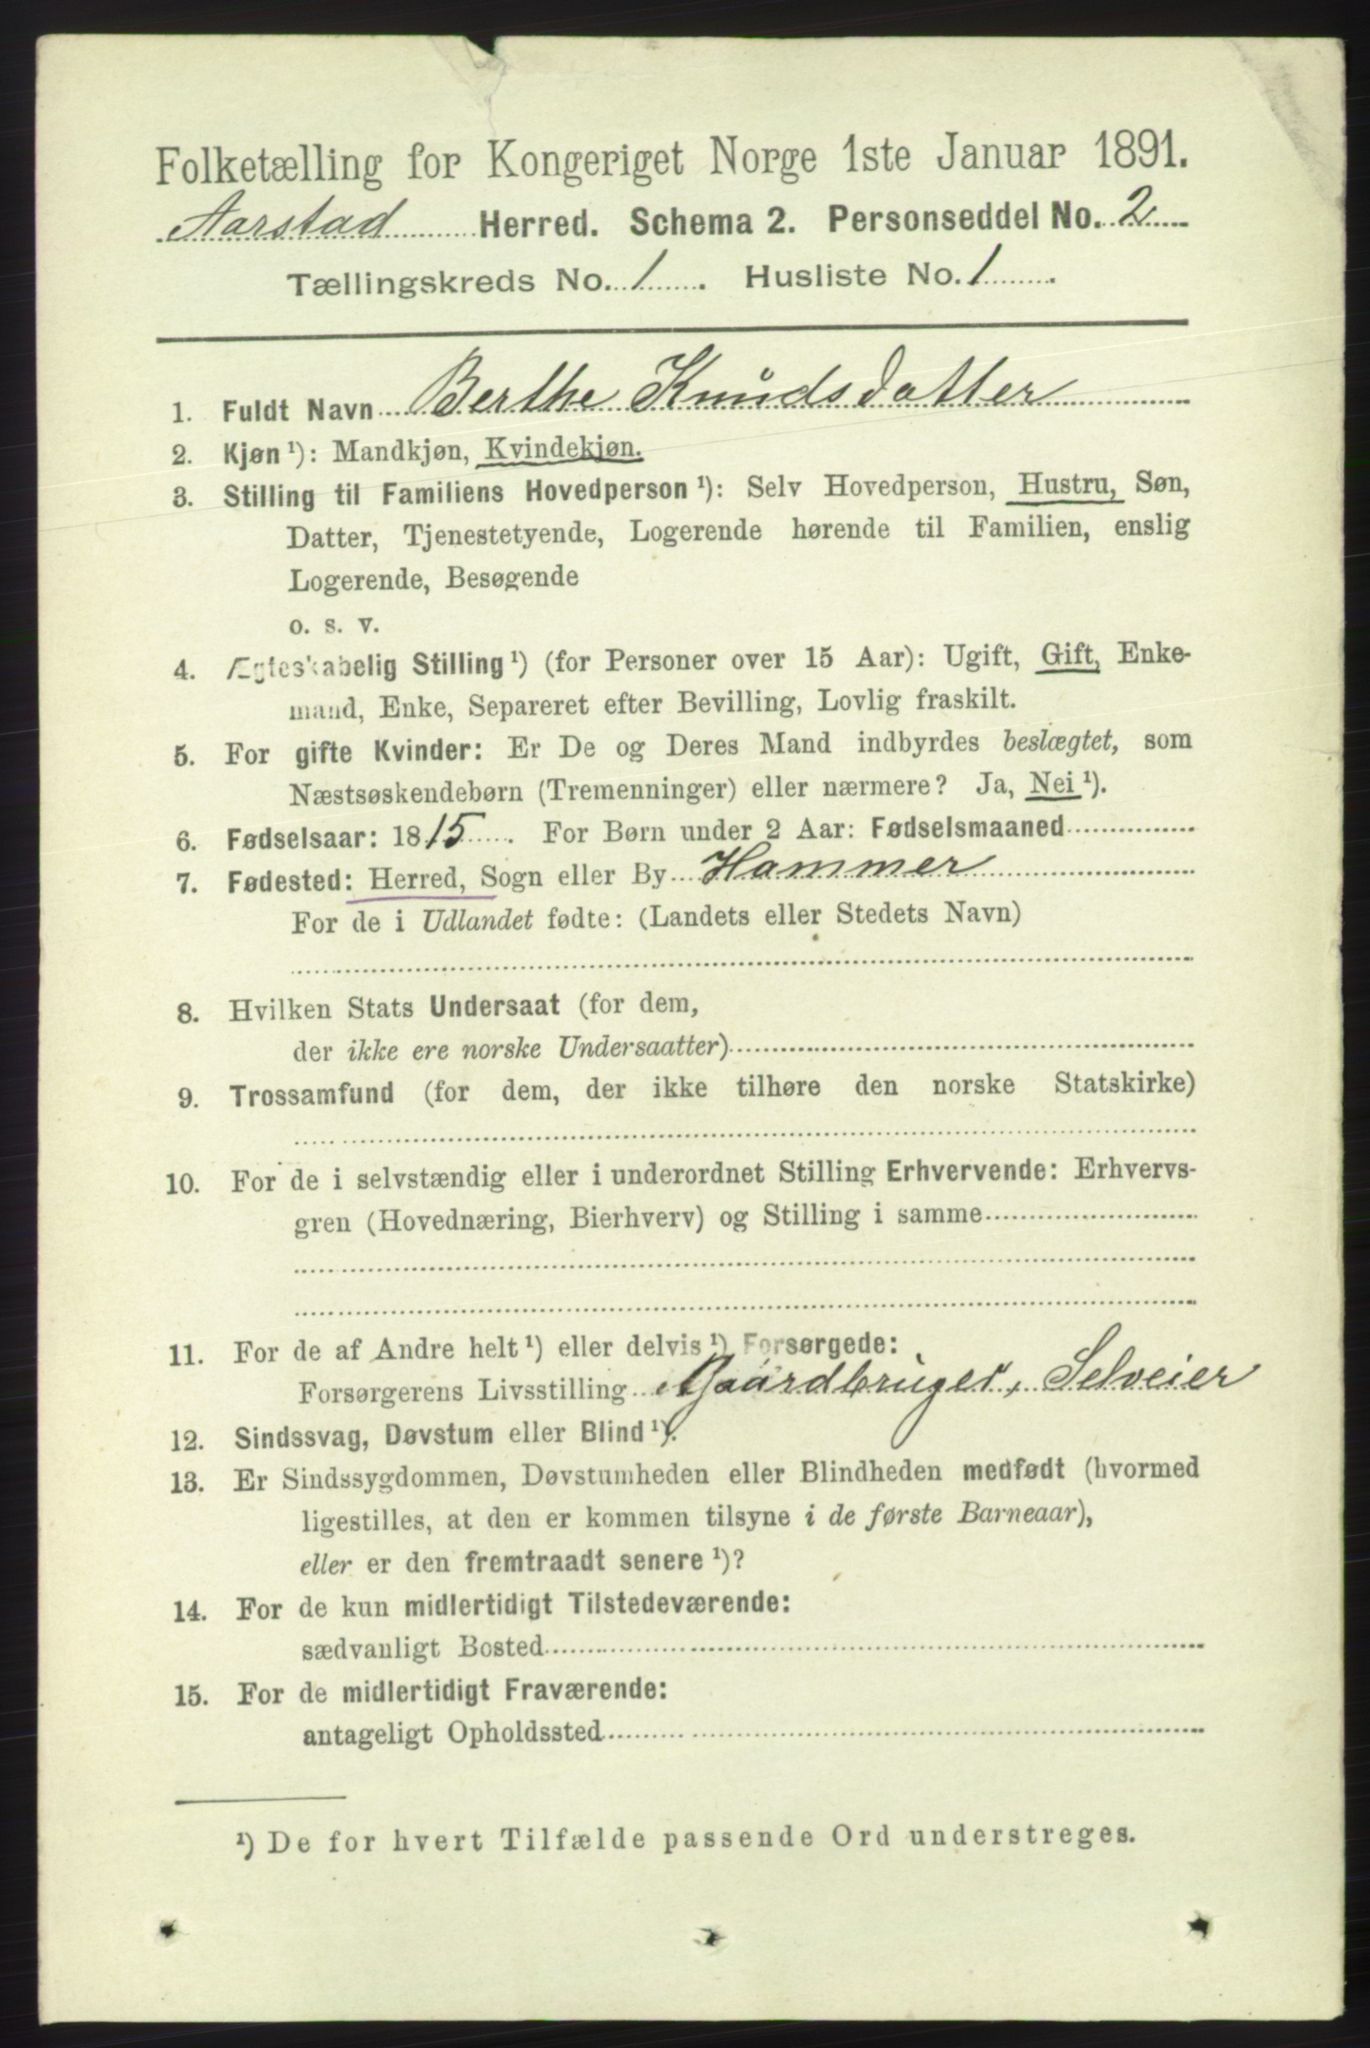 Folketælling for Kongeriget Norge 1ste Januar 1891.
Aarstad Herred. Schema 2. Personseddel No. 2
Tællingskreds No. 1 . Husliste No. 1 .
1. Fuldt Navn Berthe Knudsdatter
2. Kjøn ¹): Mandkjøn, Kvindekjøn.
3. Stilling til Familiens Hovedperson ¹): Selv Hovedperson, Hustru, Søn,
Datter, Tjenestetyende, Logerende hørende til Familien, enslig
Logerende, Besøgende
o. s. v.
4. Ægteskabelig Stilling ¹) (for Personer over 15 Aar): Ugift, Gift, Enke-
mand, Enke, Separeret efter Bevilling, Lovlig fraskilt.
5. For gifte Kvinder: Er De og Deres Mand indbyrdes beslægtet, som
Næstsøskendebørn (Tremenninger) eller nærmere? Ja, Nei ¹).
6. Fødselsaar: 1815 . For Børn under 2 Aar: Fødselsmaaned
7. Fødested: Herred, Sogn eller By Hammer
For de i Udlandet fødte: (Landets eller Stedets Navn)
8. Hvilken Stats Undersaat (for dem,
der ikke ere norske Undersaatter)
9. Trossamfund (for dem, der ikke tilhøre den norske Statskirke)
10. For de i selvstændig eller i underordnet Stilling Erhvervende: Erhvervs-
gren (Hovednæring, Bierhverv) og Stilling i samme
11. For de af Andre helt ¹) eller delvis ¹) Forsørgede:
Forsørgerens Livsstilling Gaardbruger, Selveier
12. Sindssvag, Døvstum eller Blind ¹).
13. Er Sindssygdommen, Døvstumheden eller Blindheden medfødt (hvormed
ligestilles, at den er kommen tilsyne i de første Barneaar),
eller er den fremtraadt senere ¹)?
14. For de kun midlertidigt Tilstedeværende:
sædvanligt Bosted
15. For de midlertidigt Fraværende:
antageligt Opholdssted
¹) De for hvert Tilfælde passende Ord understreges.